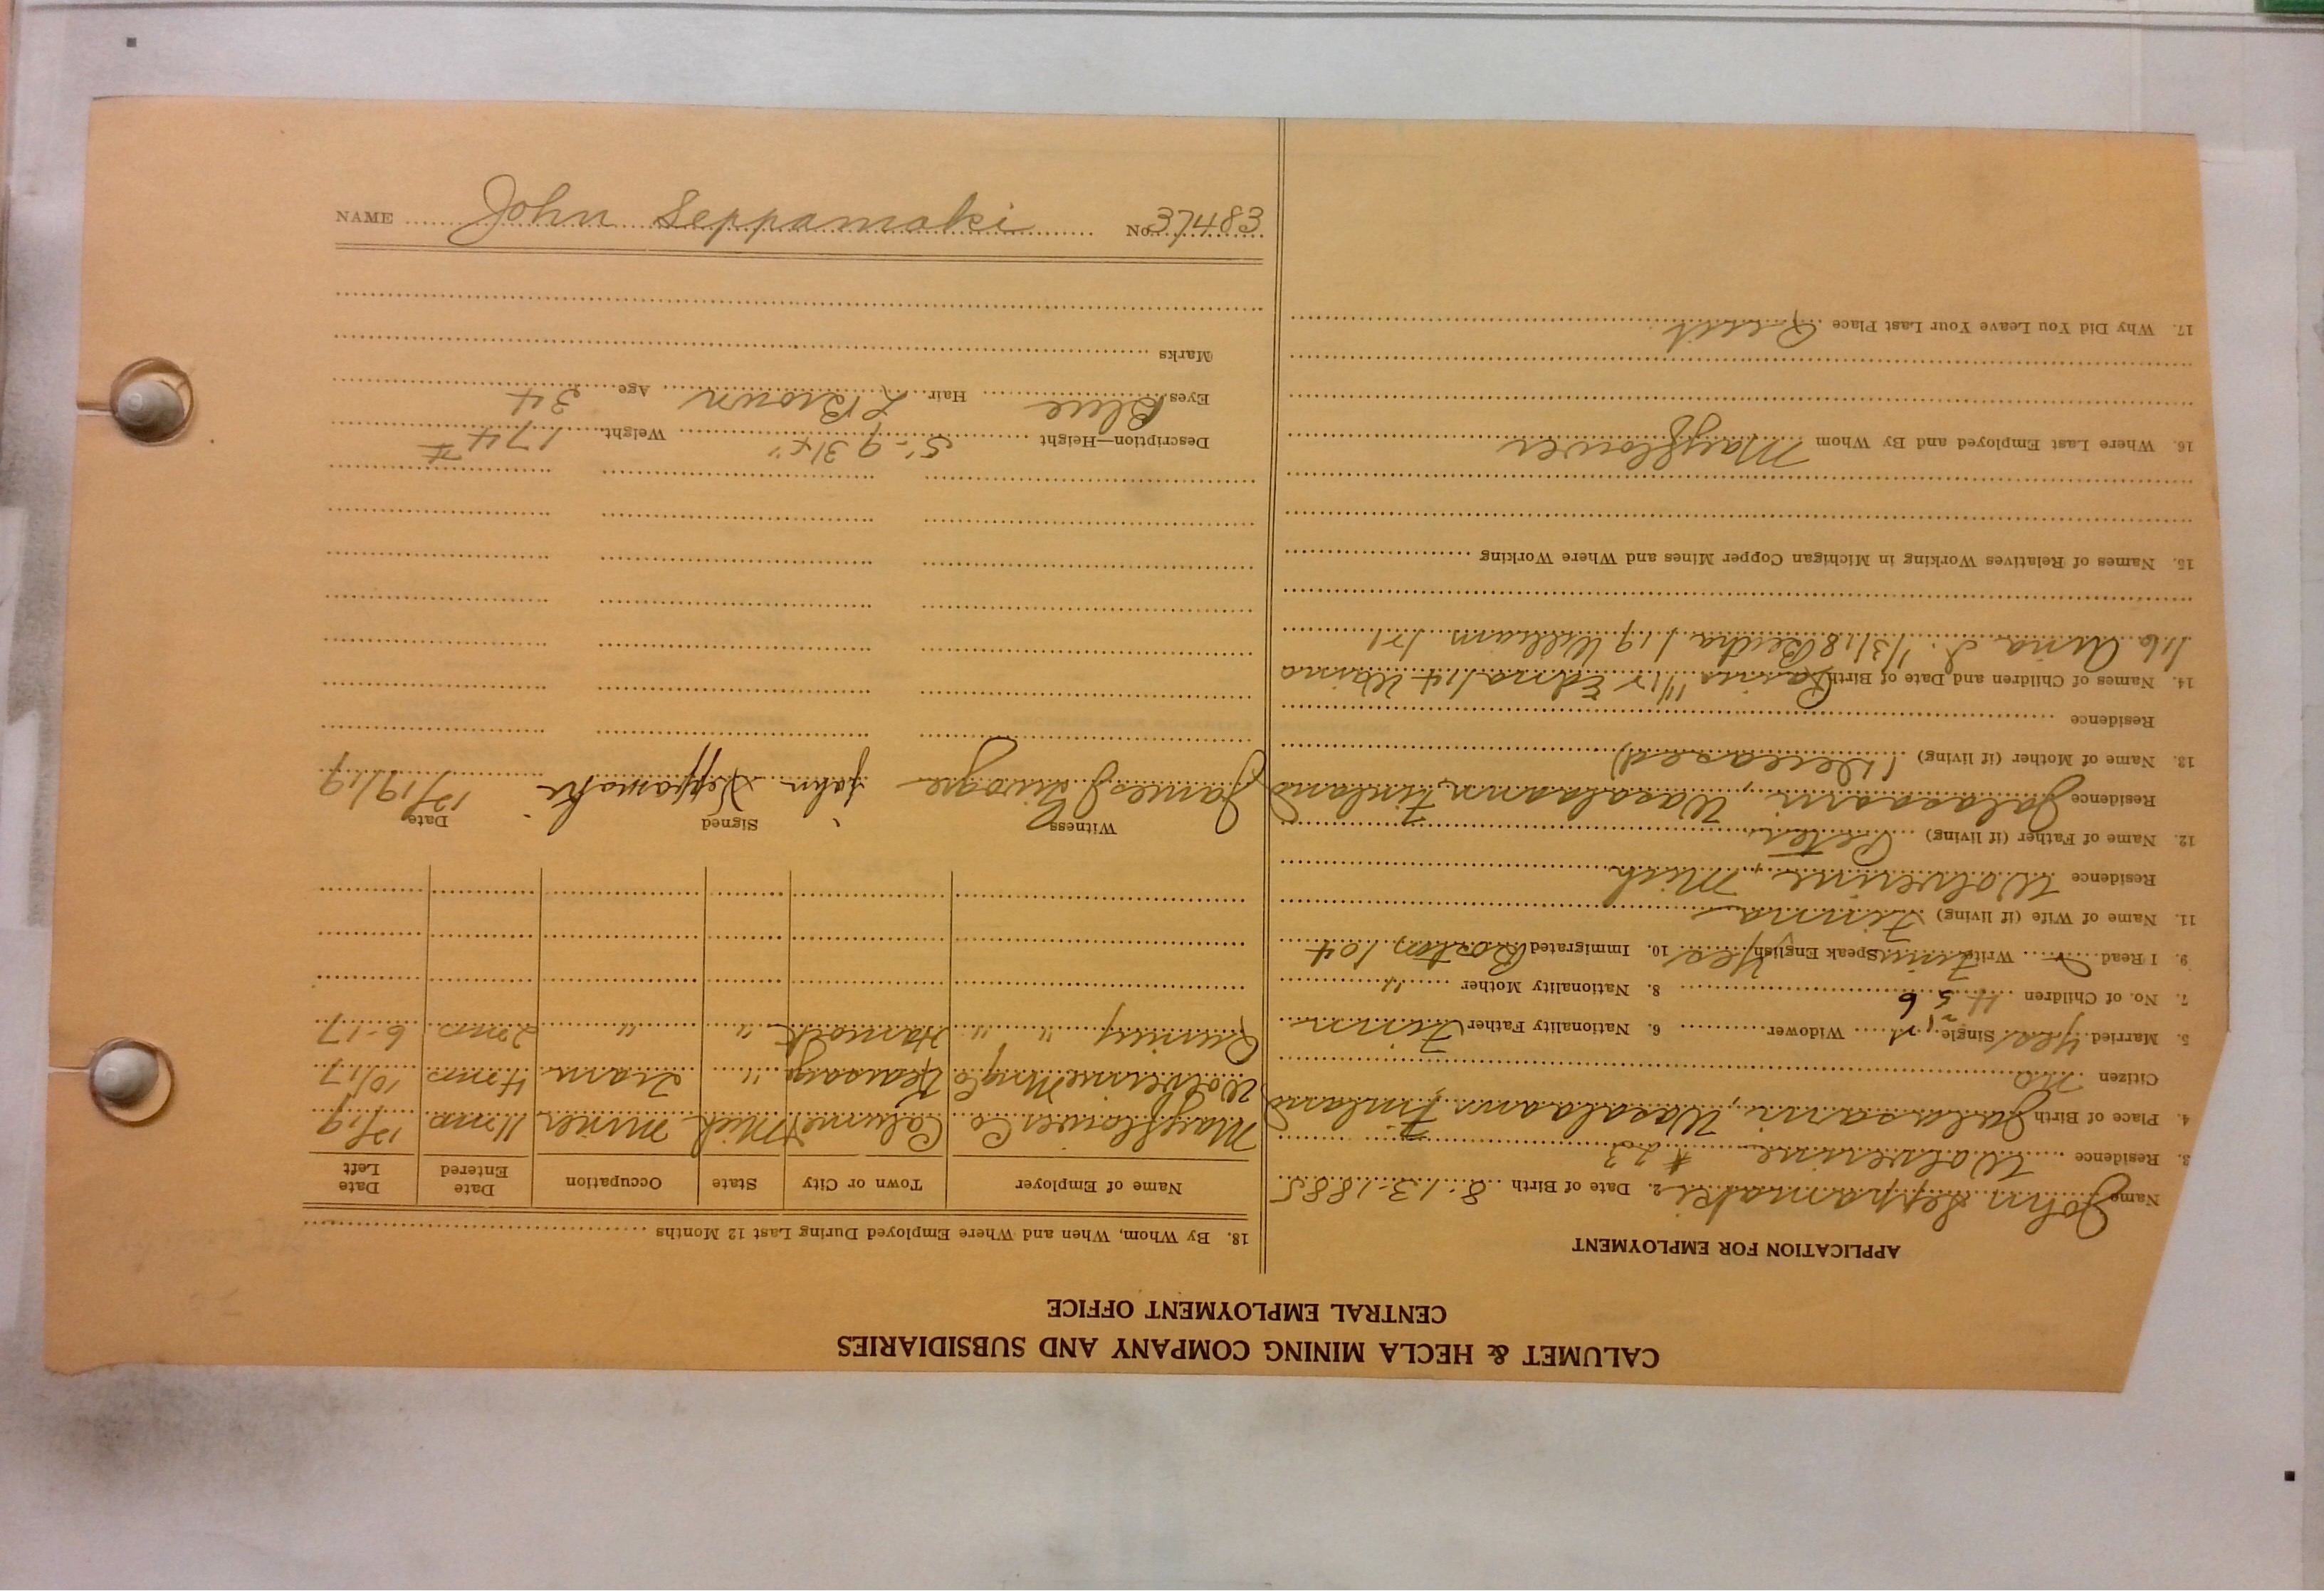 CALUMET & HECLA MINING COMPANY AND SUBSIDIARIES
CENTRAL EMPLOYMENT OFFICE
APPLICATION FOR EMPLOYMENT
Name John Seppamaki 2. Date of Birth 8-13-1885
3. Residence Wolverine #23
4. Place of Birth Jalasjarvi, Waasalaann Finland
Citizen No
5. Married Yes Single Widower 6. Nationality Father Finn
7. No. of Children 4 5 6 8. Nationality Mother "
9. I Read Write Finnish Speak English Yes 10. Immigrated Boston, 104
11. Name of Wife (if living) Finna
Residence Wolverine, Mich
12. Name of Father (if living) Peter
Residence Jalasjarvi, Waasalaann Finland
13. Name of Mother (if living) (Deceased)
Residence
14. Names of Children and Date of Birth 11/12 Edna 1/14 Waino
1/16 Anna S. 1/3/18 Bertha 1/19 William 1/21
15. Names of Relatives Working in Michigan Copper Mines and Where Working
16. Where Last Employed and By Whom Mayflower
17. Why Did You Leave Your Last Place Quit
18. By Whom, When and Where Employed During Last 12 Months
Name of Employer Town or City State Occupation Date Entered Date Left
Mayflower Co. Calumet Mich Miner 11 mos 12/19
Wolverine Mng Co Kearsarge " Tram 4 mos 10/17
Quincy " " Hancock " " 2 mos 6-17
Witness Signed Date
James J John Seppamaki 12/19/19
Description—Height 5'-9 3/4" Weight 174 #
Eyes Blue Hair L Brown Age 34
Marks
NAME John Seppamaki No 37483